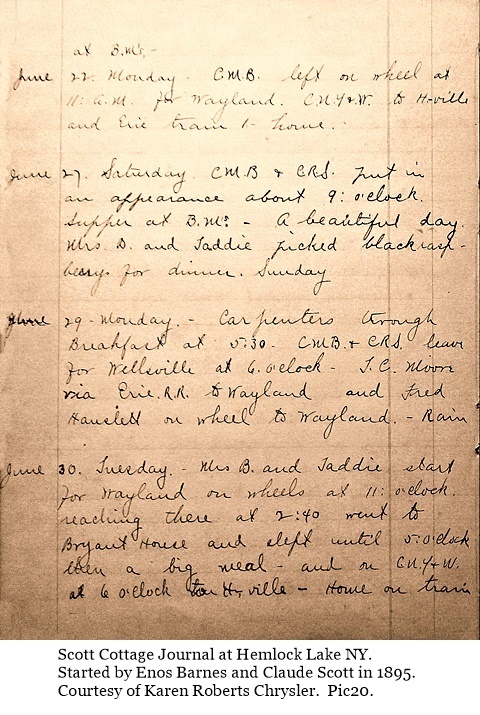 at B.M's, -
June 22. Monday. C.M.B. left on wheel at
11: A.M. for Wayland. C.N.Y.&W. to H-ville
and Erie train to home.
June 27. Saturday. CMB & CRS. put in
an appearance about 9: o'clock.
Supper at B.M's - A beautiful day.
Mrs B. and Taddie picked blackrasp-
berrys for dinner. Sunday
June 29 - Monday. - Carpenters through
Breakfast at 5:30. CMB. & CRS. leave
for Wellsville at 6. o'clock - T.C. Moore
via Erie. R.R. to Wayland and Fred
Hanslett on wheel to Wayland. - Rain
June 30. Tuesday. - Mrs B. and Taddie start
for Wayland on wheels at 11: o'clock.
reaching there at 2:40 went to
Bryant House and slept until 5: o'clock
then a big meal - and on C.N.Y&W.
at 6 o'clock to H-ville - Home on train
Scott Cottage Journal at Hemlock Lake NY.
Started by Enos Barnes and Claude Scott in 1895.
Courtesy of Karen Roberts Chrysler. Pic20.